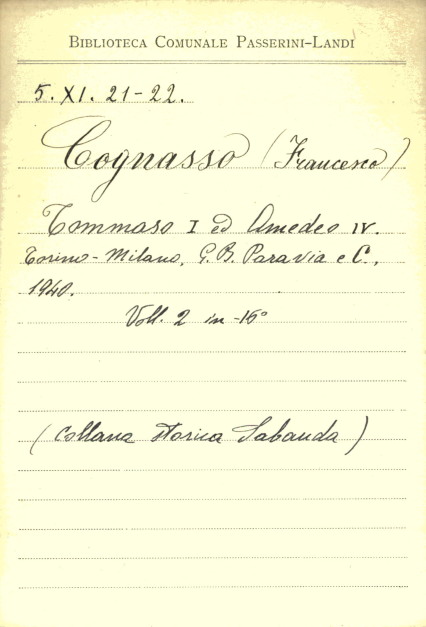 BIBLIOTECA COMUNALE PASSERINI-LANDI
5. XI. 21-22.
Cognasso (Francesco)
Tommaso I ed Amedeo IV.
Torino-Milano, G. B. Paravia e C.,
1940.
Voll. 2 in-16°
(Collana storica Sabauda)